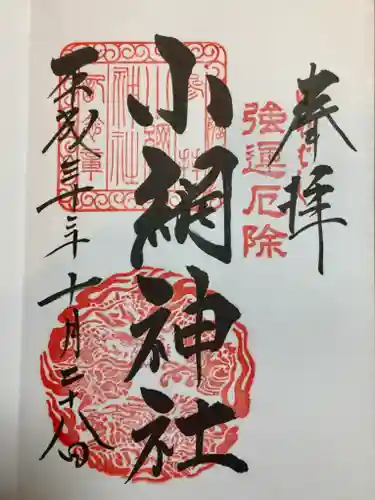 奉拝
強運厄除
小網神社
平成三十年十月二十八日